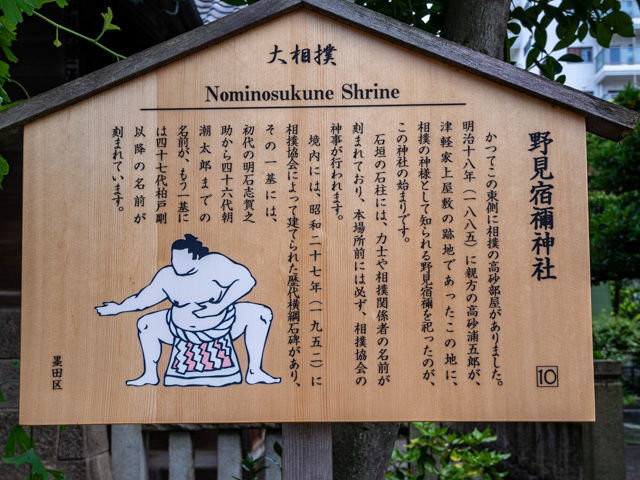 大相撲
Nominosukune Shrine
野見宿禰神社
かつてこの東側に相撲の高砂部屋がありました。
明治十八年（一八八五）に親方の高砂浦五郎が、
津軽家上屋敷の跡地であったこの地に、
相撲の神様として知られる野見宿禰を祀ったのが、
この神社の始まりです。
石垣の石柱には、力士や相撲関係者の名前が
刻まれており、本場所前には必ず、相撲協会の
神事が行われます。
境内には、昭和二十七年（一九五二）に
相撲協会によって建てられた歴代横綱石碑があり、
その一基には、
初代の明石志賀之
助から四十六代朝
潮太郎までの
名前が、もう一基に
は四十七代柏戸剛
以降の名前が
刻まれています。
10
墨田区